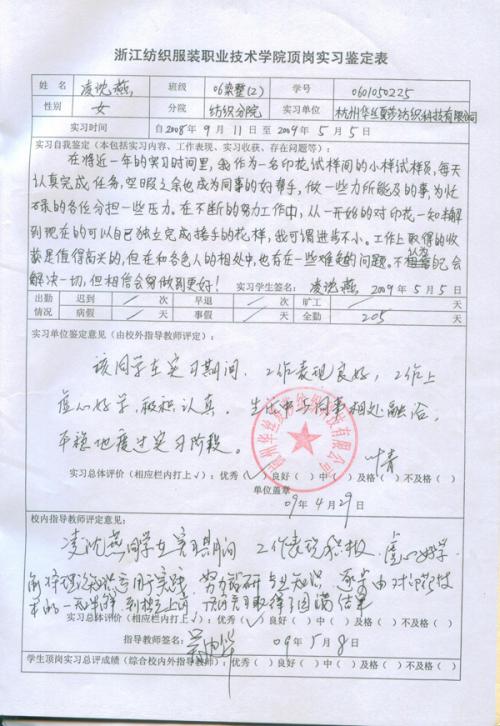 浙江纺织服装职业技术学院顶岗实习鉴定表
姓名 凌沈燕 班级 06染整(2) 学号 0601050225
性别 女 分院 纺织分院 实习单位 杭州华丝夏莎纺织科技有限公司
实习时间 自2008年9月11日至2009年5月5日
实习自我鉴定（本包括实习内容、工作表现、实习收获、存在问题等）：
在将近一年的实习时间里，我作为一名印花试样间的小样试样员，每天
认真完成任务，空暇之余也成为同事的好帮手，做一些力所能及的事，为忙
碌的各位分担一些压力。在不断的努力工作中，从一开始的对印花一知半解
到现在的可以自己独立完成接手的花样，我可谓进步不小。工作上取得的收
获是值得高兴的，但在和各色人的相处中，也存在一些难免的问题。不认为自己会
解决一切，但相信会努做到更好！ 实习学生签名：凌沈燕 2009年5月5日
出勤情况 迟到 / 次 早退 / 次 旷工 / 天
病假 / 天 事假 / 天 全勤 205 天
实习单位鉴定意见（由校外指导教师评定）：
该同学在实习期间，工作表现良好，工作上
虚心好学，积极认真。生活中与同事相处融洽，
平稳地度过实习阶段。
杭州华丝夏莎纺织科技有限公司
叶青
实习总体评价（相应栏内打上√）：优秀（√）良好（ ）中（ ）及格（ ）不及格（ ）
单位盖章
09年4月29日
校内指导教师评定意见：
凌沈燕同学在实习期间 工作表现积极，虚心好学
能将理论知识运用于实践，努力钻研专业知识，逐步由对印花技
术的一知半解到独立上岗
实习总体评价（相应栏内打上√）：优秀（√）良好（ ）中（ ）及格（ ）不及格（ ）
指导教师签名： 09年5月8日
学生顶岗实习总评成绩（综合校内外指导教师）：优秀（ ）良好（ ）中（ ）及格（ ）不及格（ ）